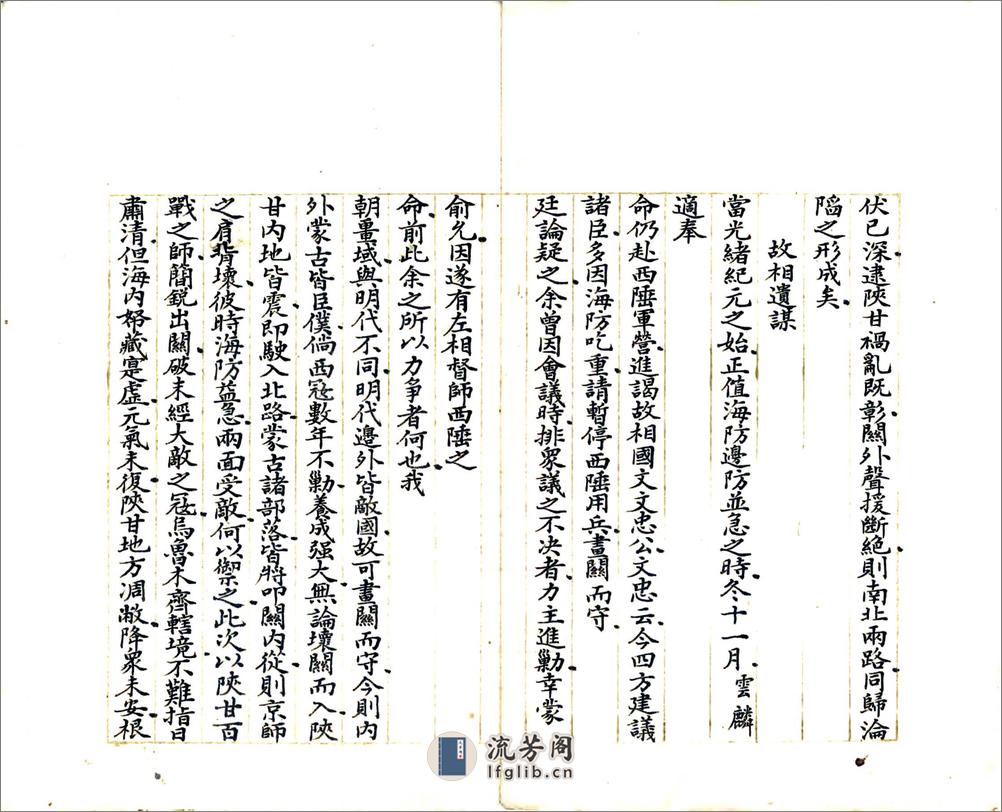 伏已深逮陝甘禍亂既彰關外聲援斷絕則南北兩路同歸淪
陷之形成矣
故相遺謀
當光緒紀元之始正值海防邊防並急之時冬十一月雲麟
適奉
命仍赴西陲軍營進謁故相國文文忠公文忠云今四方建議
諸臣多因海防吃重請暫停西陲用兵畫關而守
廷論疑之余曾因會議時排衆議之不決者力主進勦幸蒙
俞允因遂有左相督師西陲之
命前此余之所以力爭者何也我
朝畺域與明代不同明代邊外皆敵國故可畫關而守今則內
外蒙古皆臣僕倘西寇數年不勦養成强大無論壞關而入陝
甘內地皆震即駛入北路蒙古諸部落皆將叩關內從則京師
之肩背壞彼時海防益急兩面受敵何以禦之此次以陝甘百
戰之師簡銳出關破未經大敵之寇烏魯木齊轄境不難指日
肅清但海內帑藏寔虛元氣未復陝甘地方凋敝降衆未安根
流芳阁
lfglib.cn